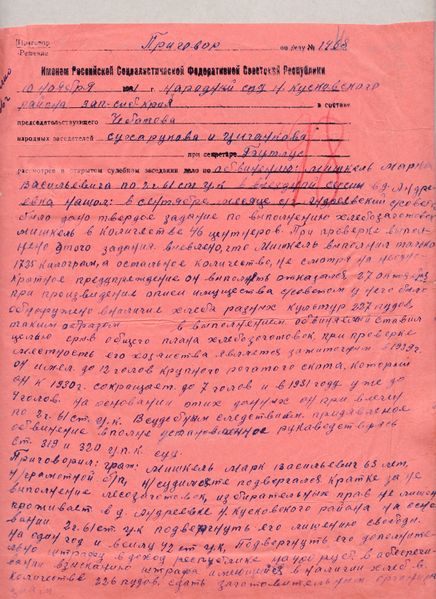 Приговор Приговор по делу № 1468
Решение
Именем Российской Социалистической Федеративной Советской Республики
10 ноября 193 г. Народный суд Н Кусковского
района Зап-Сибкрая в составе
председательствующего Чебатова
народных заседателей Сухарукова и Цыганкова
при секретаре
рассмотрев в открытом судебном заседании дело по обвинению: Мишкель Марка
Васильевича по 2 г. 61 ст. У К в выездной сессии в д. Андре
евка нашол: в сентябре месяце с/г Андреевский с/совет
было дано твердое задание по выполнению хлебозаготовок
Мишкель в количестве 46 центнеров. При проверке выпол-
нено этого задания выяснено, что Мишкель выполнил только
1735 килограм, а остальное количество, не смотря на неодно-
кратное предупреждение он выполнять отказался, 27 октября
при произведение описи имущества с/советом у него было
обноружено в наличие хлеба разных культур 227 пудов,
таким образом в выполнением обвиняемый ставил
целью срыв общего плана хлебозаготовок, при проверке
мощность его хозяйства является зажиточным в
он имел до 12 голов крупного рогатого скота, который
он к 1930 г. сокращает до 7 голов и в 1931 году уже до
4 голов. На основании этих данных он привлечен
по 2 г. 61 ст. У К. В судебным следствием придъявленое
обвинение вполне установленное руководствуясь
ст 319 и 320 У.П.К. суд.
Приговорил: граж. Мишкель Марк Васильевич 63 лет,
н/грамотной б/п, н/судим, подвергался кратке за не
выполнение лесозаготовок, избирательных прав не лишен
проживает в д. Андреевке Н. Кусковского района на осно-
вании 2 г. 61 ст. У К подвергнуть его лишению свободы
на один год и в силу 42 ст. У К, Подвергнуть его дополните
льно штрафу в доход республике на 400 руб. в обеспече-
нии взысканию штрафа имеющийся в наличии хлеб в
количестве 226 пудов сдать заготовительным организа
циям